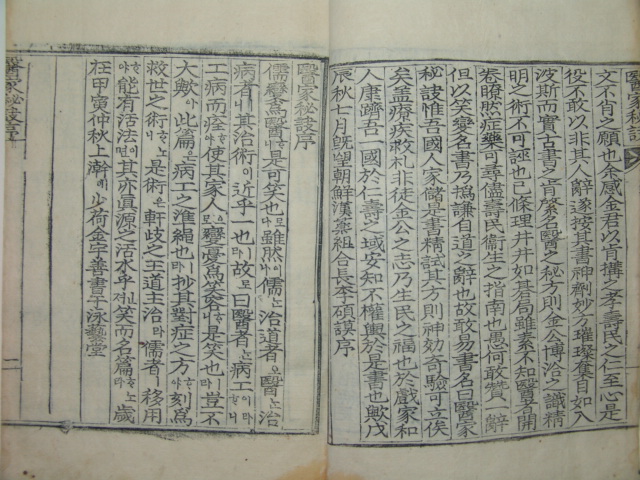 醫家秘訣
文不肖之願也余感金君以肯搆之孝壽民之仁至心是
役不敢以非其人辭遂按其書神劑妙方璀璨奪目如入
波斯而實古書之肯綮名醫之秘方則金公博洽之識精
明之術不可誣也已條理井井如碁局雖素不知醫者開
卷瞭然症藥可尋儘壽民衛生之指南也愚何敢贊一辭
但以笑變名書乃撝謙自道之辭也故敢易書名曰醫家
秘訣惟吾國人家儲是書精試其方則神効奇驗可立俟
矣盖療疾救札非徒金公之志乃生民之福也於戱家和
人康躋吾一國於仁壽之域安知不權輿於是書也歟戊
辰秋七月旣望朝鮮漢藥組合長李碩謨序
醫家秘訣序
儒變爲醫ᄒᆞ니是可笑也로다雖然이나儒ᄂᆞᆫ治道者오醫ᄂᆞᆫ治
病者니其治術이近乎一也라故로曰醫者ᄂᆞᆫ病工이라ᄒᆞ니
工病而痊ᄒᆞ야使其家人으로變憂爲笑케ᄒᆞ니是笑也ㅣ豈不
大歟아此篇은病工之準繩也라抄其對症之方ᄒᆞ야刻爲
救世之術ᄒᆞ니是術은軒歧之王道主治라儒者ㅣ移用
ᄒᆞ야能有活法이면其亦眞源之活水乎져笑而名篇ᄒᆞ노라歲
在甲寅仲秋上澣에少荷金宇善書于泳藝堂
醫家秘訣序
二